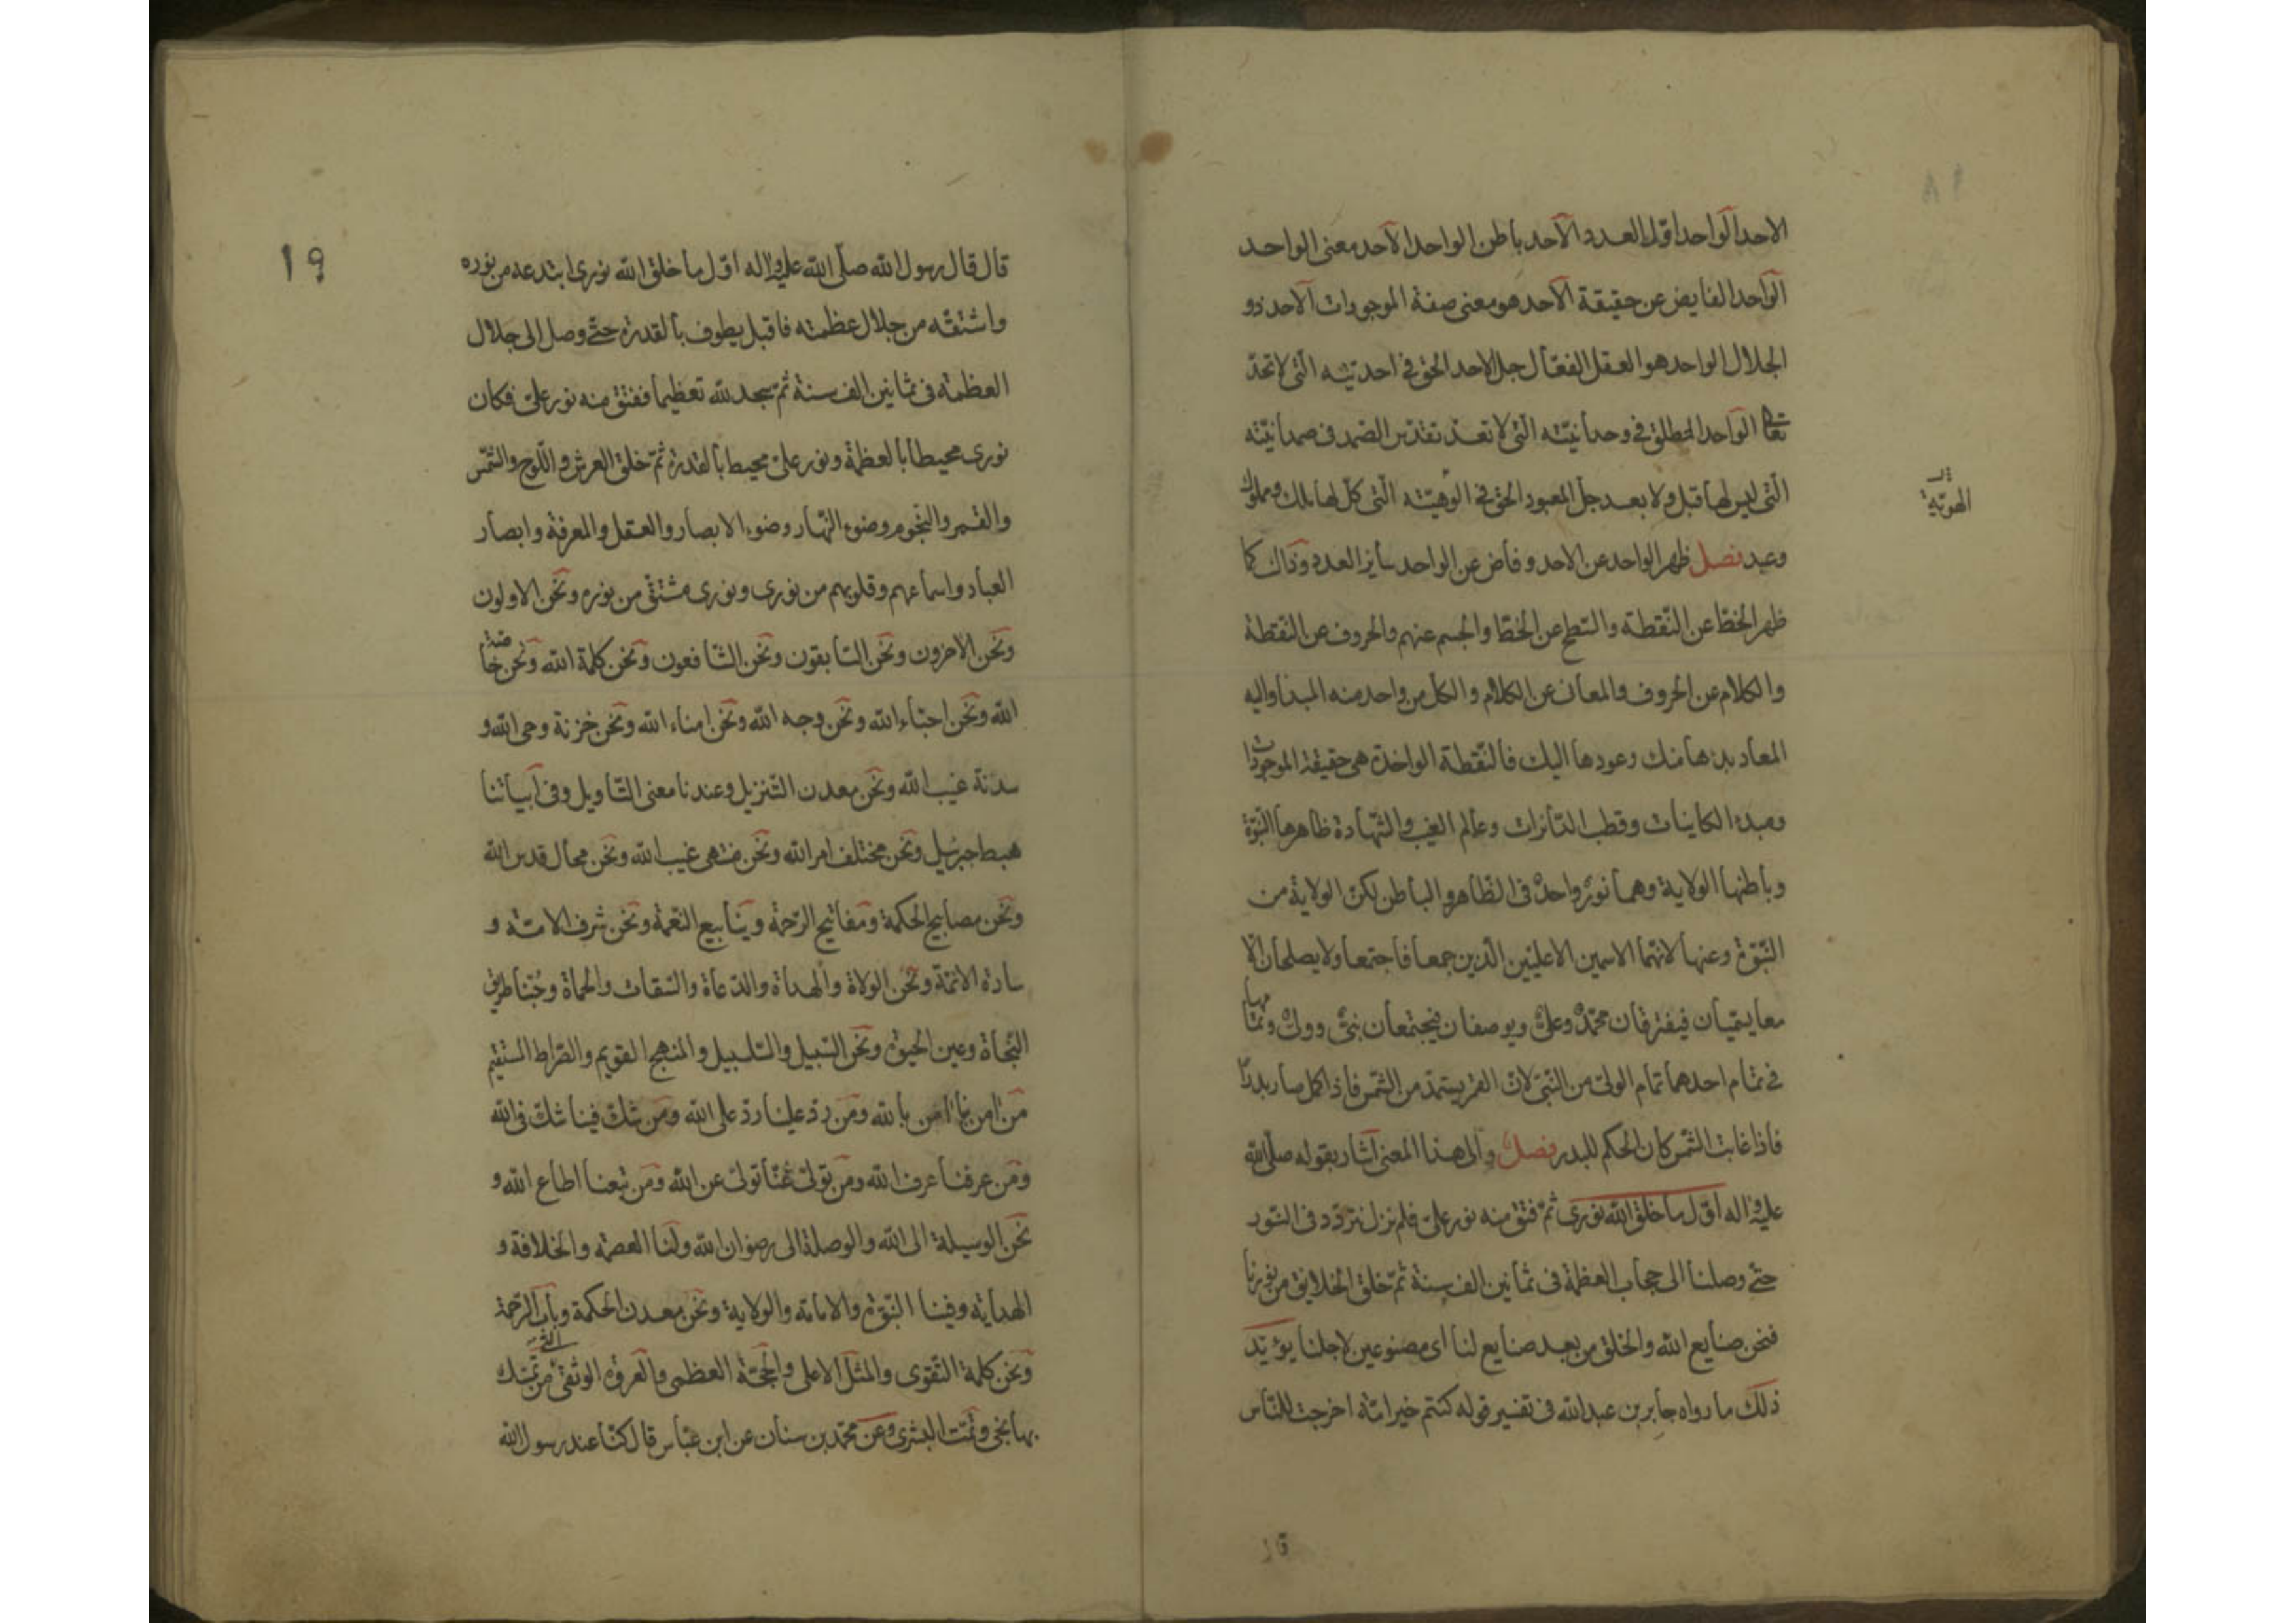 الاحد الواحد اوّل العدد الآحد باطن الواحد الآحد معنى الواحد
الواحد الفايض عن حقيقة الآحد هو معنى صفة الموجودات الآحد ذو
الجلال الواحد هو العقل الفعّال جل الاحد الحق فى احديّته الّتى لا تحدّ
تعالى الواحد المطلق فى وحدانيّته الّتى لا تعدّ تقدّس الصّمد فى صمدانيّته
الّتى ليس لها قبل ولا بعد جلّ المعبود الحق فى الوهيّته الّتى كلّ لها ملك ومملوك
الهويّة
وعبد فصل ظهر الواحد عن الاحد وفاض عن الواحد ساير العدد وذاك كما
ظهر الخطّ عن النّقطة والسّطح عن الخطّ والجسم عنهم والحروف عن النّقطة
والكلام عن الحروف والمعانى عن الكلام والكل من واحد منه المبدأ واليه
المعاد بدؤها منك وعودها اليك فالنّقطة الواحدة هى حقيقة الموجودات
ومبدء الكاينات وقطب الدّائرات وعالم الغيب والشّهادة ظاهرها النّبوّة
وباطنها الولاية وهما نورٌ واحدٌ فى الظّاهر والباطن لكنّ الولاية من
النّبوّة وعنها لانّهما الاسمين الاعليين الّذين جمعا فاجتمعا ولا يصلحان الّا
معا يسمّيان فيفترقان محمّدٌ وعلىٌّ ويوصفان فيجتمعان نبىٌّ وولىٌّ وتمامها
فى تمام احدهما تمام الولىّ من النّبىّ لانّ القمر يستمدّ من الشّمس فاذا كمل صار بدراً
فاذا غابت الشّمس كان الحكم للبدر فصلٌ والى هذا المعنى اشار بقوله صلّى الله
عليه واله اوّل ما خلق الله نورى ثمّ فتق منه نور علىّ فلم نزل نتردّد فى النّور
حتّى وصلنا الى حجاب العظمة فى ثمانين الف سنة ثمّ خلق الخلايق من نورنا
فنحن صنايع الله والخلق من بعد صنايع لنا اى مصنوعين لاجلنا يؤيّد
ذلك ما رواه جابر بن عبدالله فى تفسير قوله كنتم خير امّة اخرجت للنّاس
19
قال قال رسول الله صلّى الله عليه واله اوّل ما خلق الله نورى ابتدعه من نوره
واشتقّه من جلال عظمته فاقبل يطوف بالقدرة حتّى وصل الى جلال
العظمة فى ثمانين الف سنة ثمّ سجد للّه تعظيما ففتق منه نور علىّ فكان
نورى محيطا بالعظمة ونور علىّ محيطا بالقدرة ثمّ خلق العرش واللّوح والشّمس
والقمر والنّجوم وضوء النّهار وضوء الابصار والعقل والمعرفة وابصار
العباد واسماعهم وقلوبهم من نورى ونورى مشتقّ من نوره ونحن الاولون
ونحن الاخرون ونحن السّابقون ونحن الشّافعون ونحن كلمة الله ونحن خاصّة
الله ونحن احبّاء الله ونحن وجه الله ونحن امناء الله ونحن خزنة وحى الله و
سدنة غيب الله ونحن معدن التّنزيل وعندنا معنى التّاويل وفى ابياتنا
هبط جبرئيل ونحن مختلف امر الله ونحن منتهى غيب الله ونحن محال قدس الله
ونحن مصابيح الحكمة ومفاتيح الرّحمة وينابيع النّعمة ونحن شرف الامّة و
سادة الائمّة ونحن الولاة والهداة والدّعاة والسّقاة والحماة وحبّنا طريق
النّجاة وعين الحيوة ونحن السّبيل والسّلسبيل والمنهج القويم والصّراط المستقيم
من امن بنا امن بالله ومن ردّ علينا ردّ على الله ومن شكّ فينا شكّ فى الله
ومن عرفنا عرف الله ومن تولّى عنّا تولّى عن الله ومن تبعنا اطاع الله و
نحن الوسيلة الى الله والوصلة الى رضوان الله ولنا العصمة والخلافة و
الهداية وفينا النّبوّة والامامة والولاية ونحن معدن الحكمة وباب الرّحمة
ونحن كلمة التّقوى والمثل الاعلى والحجّة العظمى والعروة الوثقى الّتى من تمسّك
بها نجى وتمّت البشرى وعن محمّد بن سنان عن ابن عبّاس قال كنّا عند رسول الله